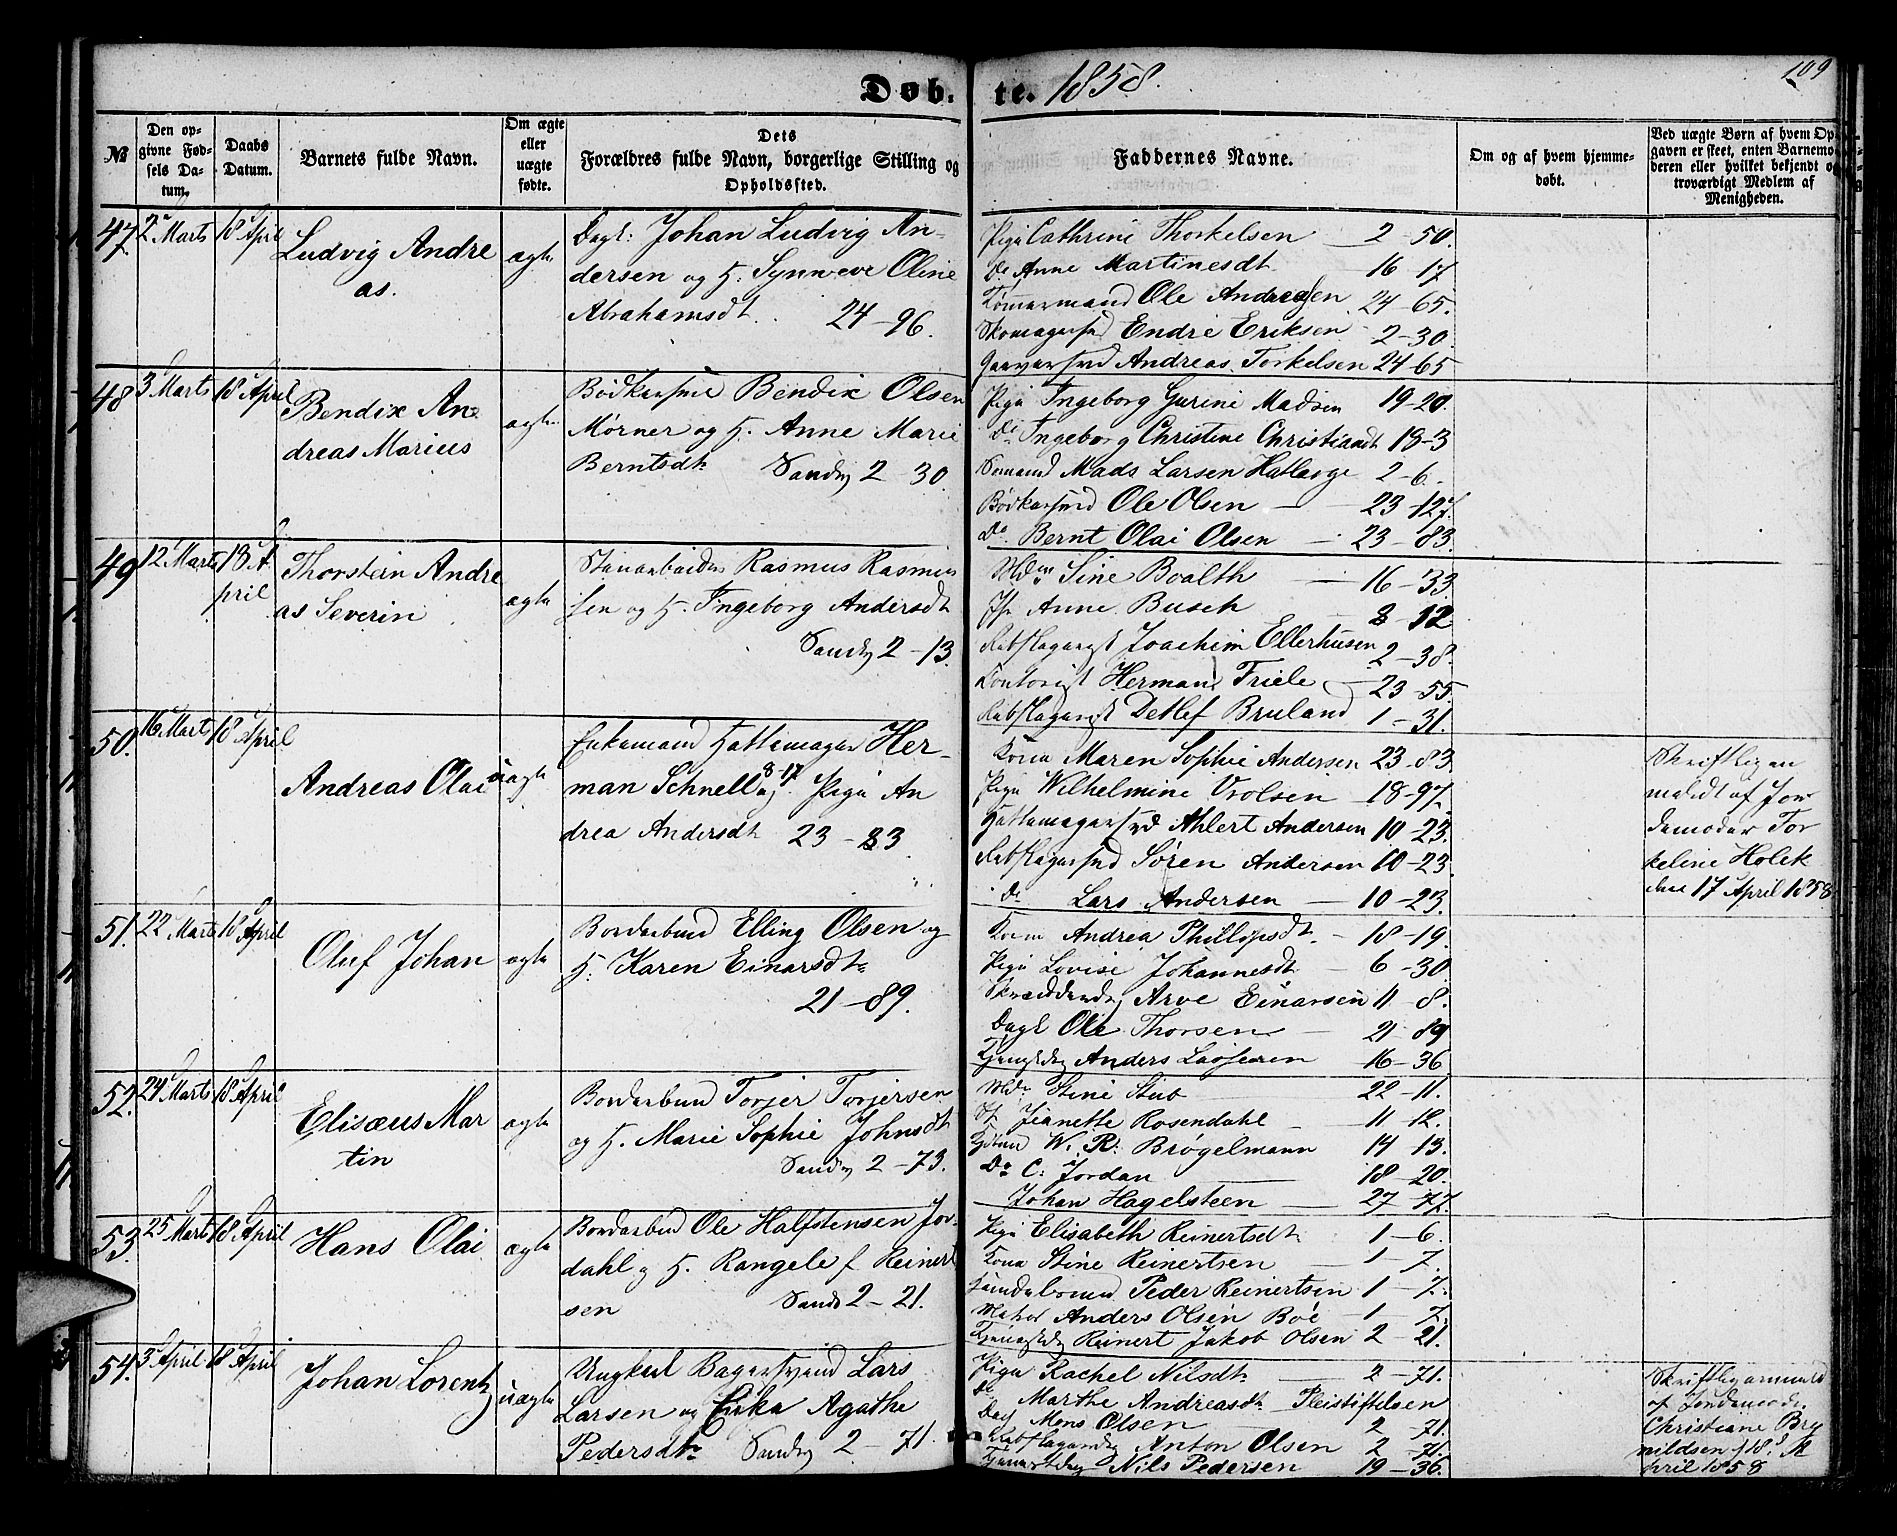 Døb-te. 1858.
109
№
Den op-
givne Fød-
sels Da-
tum.
Daabs
Datum.
Barnets fulde Navn.
Om ægte
eller
uægte
fødte.
Dets
Forældres fulde Navn, borgerlige Stilling og
Opholdssted.
Faddernes Navne.
Om og af hvem hjemme-
døbt.
Ved uægte Børn af hvem Op-
gaven er skeet, enten Barnemo-
deren eller hvilket bekjendt og
troværdigt Medlem af
Menigheden.
47. 2 Marts 18 April
Ludvig Andre
as.
ægte
Dagk: Johan Ludvig An-
dersen og H. Synneve Oline
Abrahamsdt. 24-96.
Pige Cathrine Thorkelsen 2-50.
Do Anne Martinesdt 16-17
Tømmermand Ole Andreasen 24-65.
Skomagersvd Endre Eriksen 2-30.
Garversvd Andreas Torkelsen 24-65
48 3 Marts 18 April
Bendix An-
dreas Marius
ægte
Bødkersvd Bendix Olsen
Mørner og H. Anne Marie
Berntsdt Sandv 2-30.
Pige Ingeborg Gurine Madsen 19-20.
Do Ingeborg Christine Christiandt 18-3
Sømand Mads Larsen Hatlevge 2-6.
Bødkersvd Ole Olsen 23-127.
Do Bernt Olai Olsen 23-83.
49 12 Marts 18 A-
pril
Thorstein Andre
as Severin
ægte
Stenarbeider Rasmus Rasmus
sen og H. Ingeborg Andersdt
Sandv 2-13.
Mdm Sine Boalth 16-33
Jfr Anne Busch 8-12
Rebslagersvd Joachim Ellerhusen 2-38.
Kontorist Herman Friele 23-55.
Rebslagersvd Detlef Bruland 1-31.
50. 16 Marts 18 April
Andreas Olai
uægte
Enkemand Hattemager Her-
man Schnell 8-17 og Pige An
drea Andersdt 23-83
Kone Maren Sophie Andersen 23-83
Pige Wilhelmine Vrolsen 18-97.
Hattemagersvd Ahlert Andersen 10-23.
Rebslagersvd Søren Andersen 10-23.
Do Lars Andersen 10-23.
Skriftlig an
meldt af Jor
demoder Tor
keline Holck
den 17 April 1858
51. 22 Marts 18 April
Oluf Johan
ægte
Bordarbmd Elling Olsen og
H. Karen Einarsdt
21-89.
Kone Andrea Phillipsdt. 18-19.
Pige Lovise Johannesdt 6-30
Skrædder Arve Einarsen 11-8.
Dagk Ole Thorsen 21-89
Anders Laastuen 16-36
52. 24 Marts 18 April
Elisæus Mar
tin
ægte
Bordarbmd Torjer Torjersen
og H. Marie Sophie Johnsdt
Sandv 2-73.
Mdm Stine Stub 22-11.
Jf Jeanette Rosendahl 11-12.
W. R. Brøgelmann 14-13.
Do C: Jordan 18-20.
Johan Hagelsteen 27-77.
53. 25 Marts 18 April
Hans Olai
ægte
Bordarbmd Ole Halfstensen Jor-
dahl og H. Rangele f Reinert
sen Sandv 2-21.
Pige Elisabeth Reinertsdt 1-6.
Kone Stine Reinertsen 1-7.
Peder Reinertsen 1-7.
Anders Olsen Bøe 1-7.
Reinert Jakob Olsen 2-21.
54. 3 April 18 April
Johan Lorentz
uægte
Ungkarl Bagersvend Lars
Larsen og Enke Agathe
Pedersdt Sandv 2-71.
Pige Rachel Nilsdt 2-71.
Do Marthe Andreasdt Pleistiftelsen
Dag Mons Olsen 2-71.
Anton Olsen 2-71.
Nils Pedersen 19-36.
Skriftlig anmeld
af Jordemoder
Christiane Bry
nildsen 18 A
pril 1858